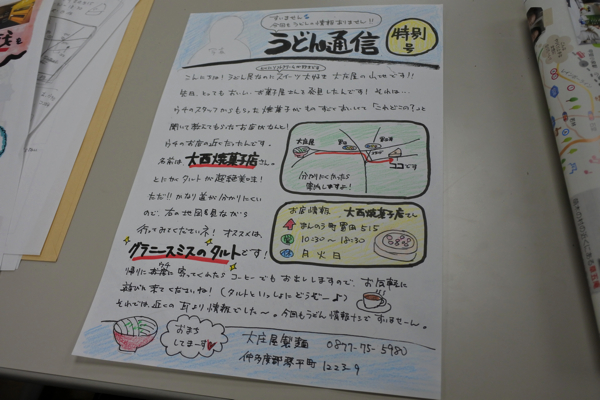 すいません
今回もうどんの情報ありません!!
うどん通信
特別号
こんにちは!うどん屋なのにスイーツ大好き 大庄屋の
先日、とってもおいしいお菓子屋さんを発見したんです!それは…
うちのスタッフからもらった焼菓子がものすごくおいしくて「これどこの?」と
聞いて教えてもらったお店なんです!
うちのお店の近くだったんです。
名前は大西焼菓子店さん。
とにかくタルトが超絶美味!
ただ!!かなり道が分かりにくい
ので、右の地図を見ながら
行ってみてくださいネ!オススメは、
グラニースミスのタルトです!
大庄屋
ココです
分かりにくかったら
案内しますよ!
お店情報 大西焼菓子店さん
まんのう町買田515
10:30〜18:30
月火日
帰りにお店に寄ってくれたらコーヒーでもお出ししますので、お気軽に
遊びに来てくださいね!(タルトといっしょにどうぞー♪)
それでは、近くの耳より情報でした〜。今回もうどん情報ナシですいませーん。
おまち
してまーす
大庄屋製麺 0877-75-5980
仲多度郡琴平町1223-9